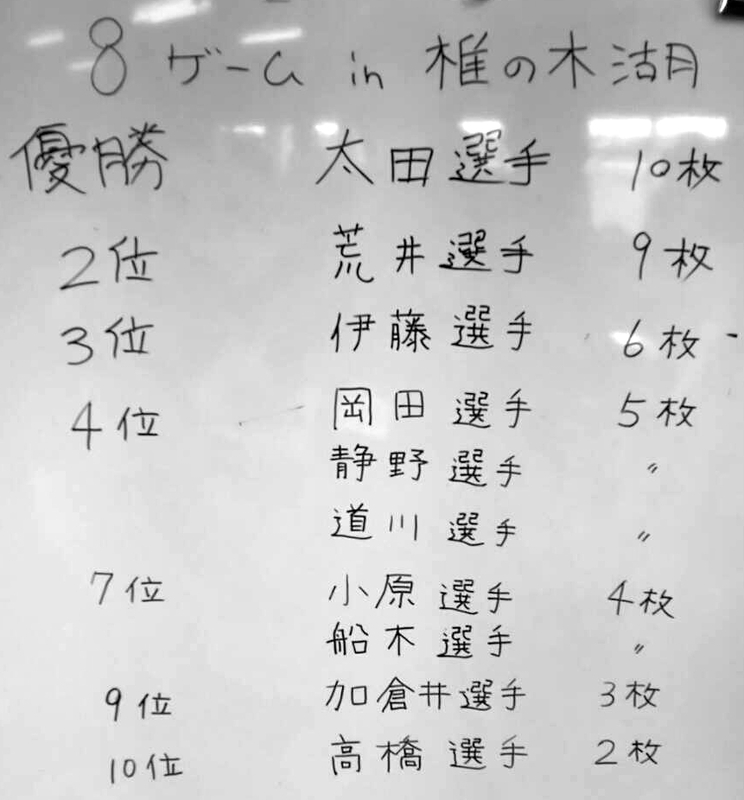 8ゲーム in 椎の木湖
優勝 太田選手 10枚
2位 荒井選手 9枚
3位 伊藤選手 6枚
4位 岡田選手 5枚
静野選手 〃
道川選手 〃
7位 小原選手 4枚
船木選手 〃
9位 加倉井選手 3枚
10位 高橋選手 2枚